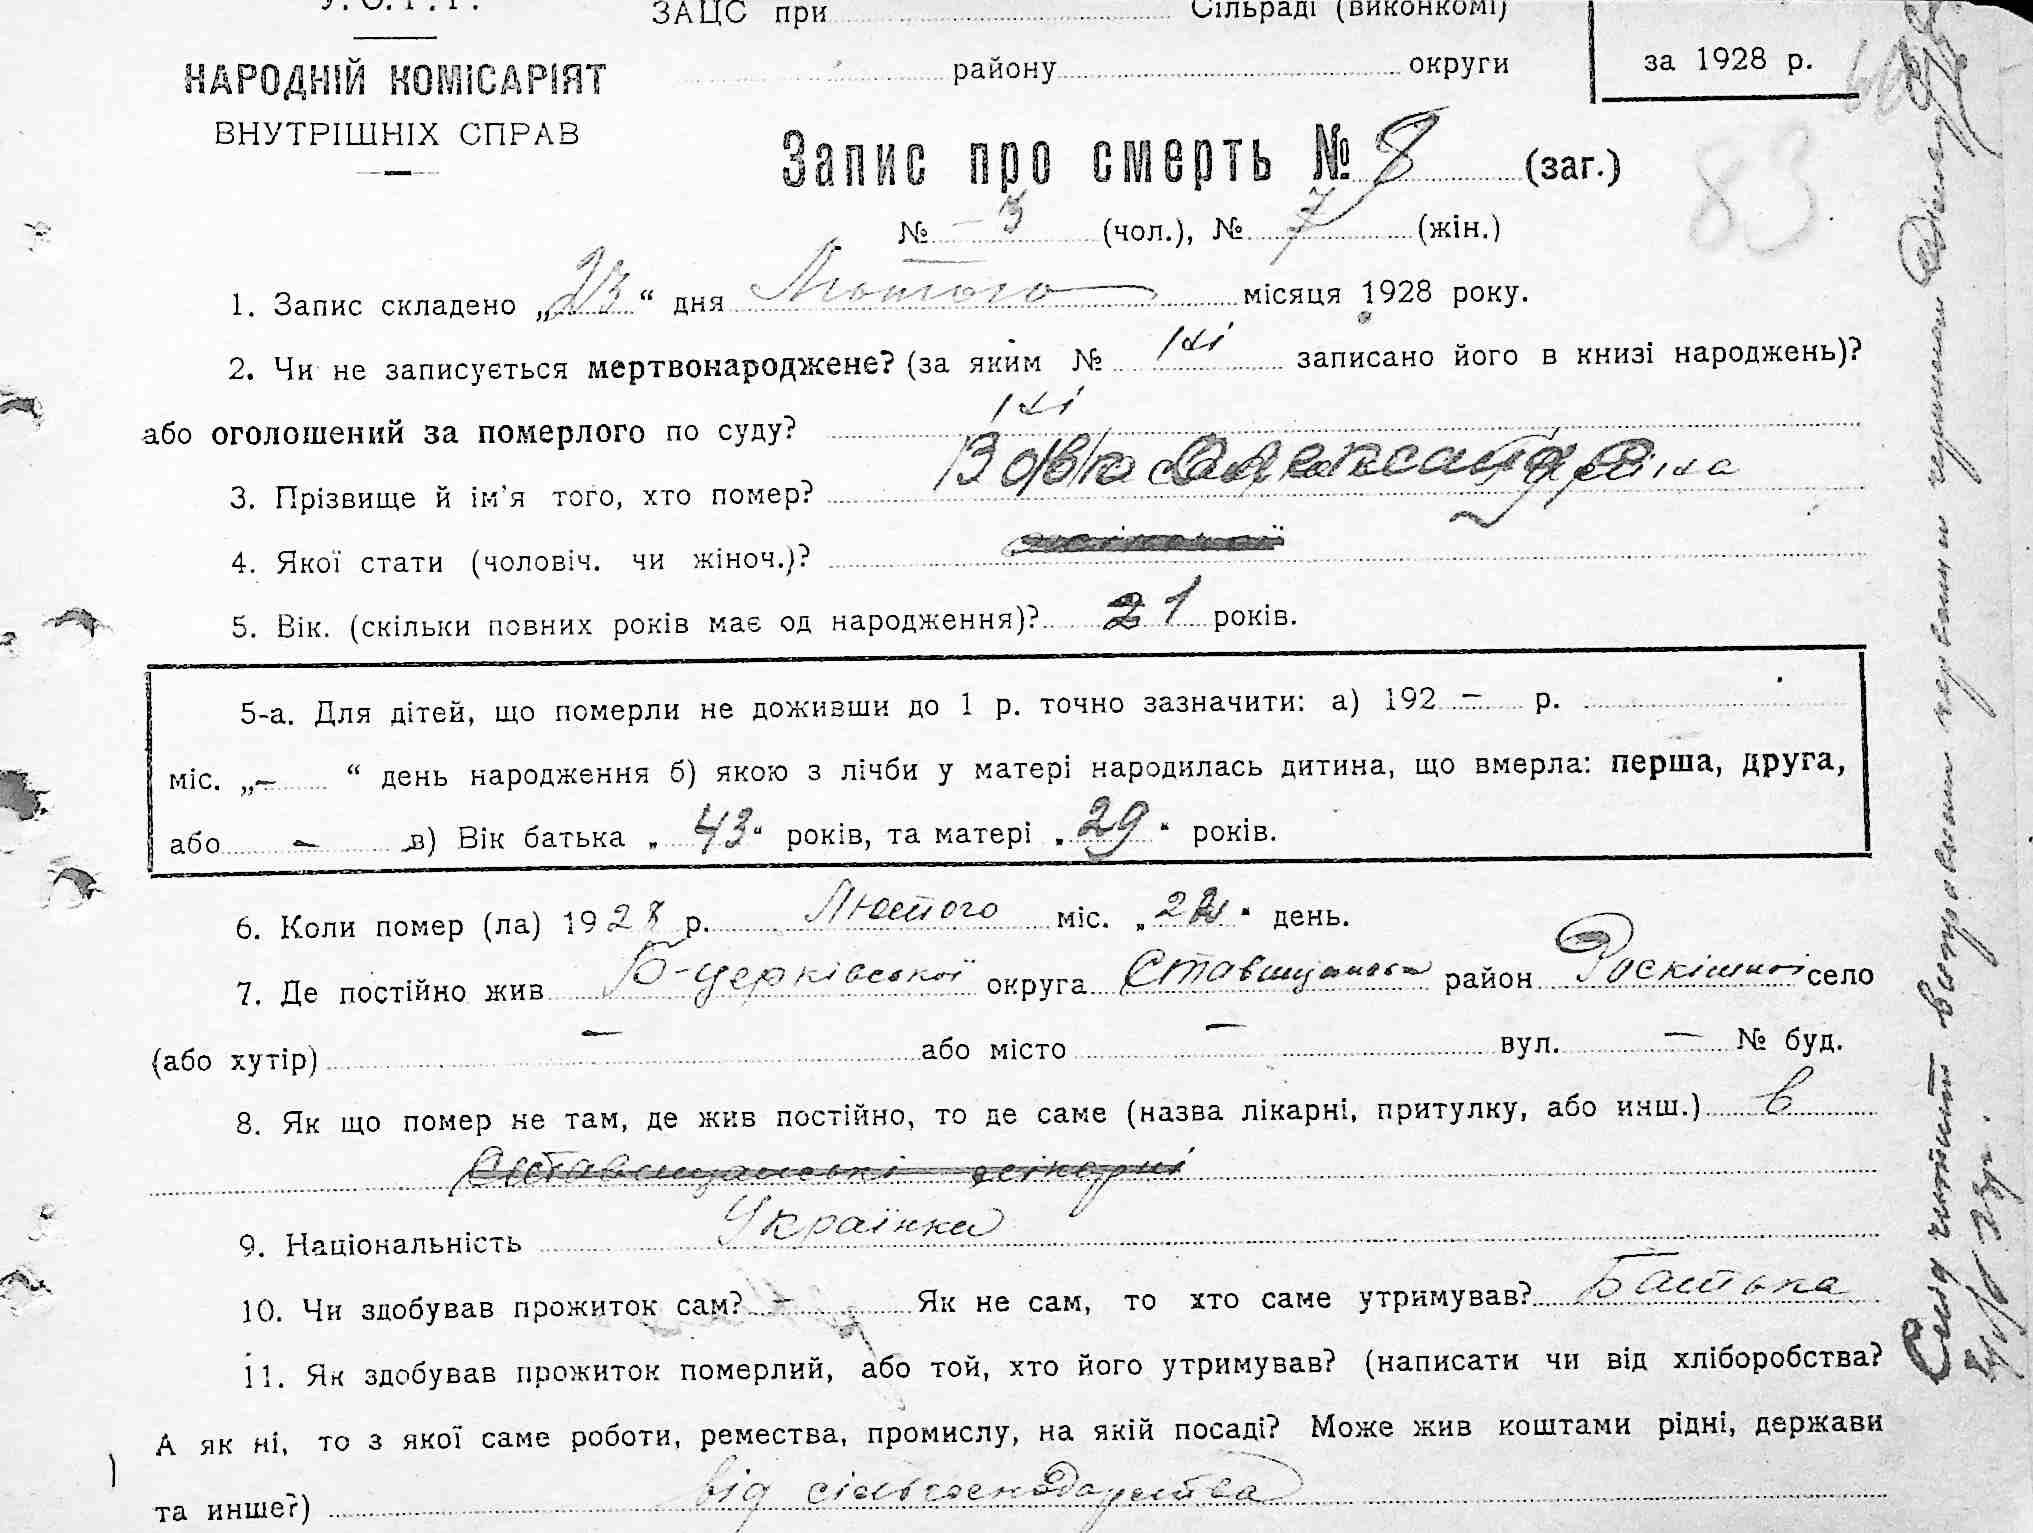 У.С.Р.Р.
ЗАЦС при Сільраді (виконкомі)
НАРОДНІЙ КОМІСАРІЯТ
ВНУТРІШНІХ СПРАВ
району округи
за 1928 р.
Запис про смерть № 8 (заг.)
83
№ – 3 (чол.), № 7 (жін.)
1. Запис складено „23“ дня Лютого місяця 1928 року.
2. Чи не записується мертвонароджене? (за яким № ні записано його в книзі народжень)?
або оголошений за померлого по суду? ні
3. Прізвище й ім'я того, хто помер?
4. Якої стати (чоловіч. чи жіноч.)?
5. Вік. (скільки повних років має од народження)? 21 років.
5-а. Для дітей, що померли не доживши до 1 р. точно зазначити: а) 192 – р.
міс. „– “ день народження б) якою з лічби у матері народилась дитина, що вмерла: перша, друга,
або – в) Вік батька „ 43 “ років, та матері „ 29 “ років.
6. Коли помер (ла) 1928 р. Лютого міс. „ 22 “ день.
7. Де постійно жив Б-церківської округа Ставищанськ район Роскішної село
(або хутір) – або місто – вул. – № буд.
8. Як що помер не там, де жив постійно, то де саме (назва лікарні, притулку, або инш.) в
Ставищанські лікарні
9. Національність Українка
10. Чи здобував прожиток сам? – Як не сам, то хто саме утримував? Батька
11. Як здобував прожиток померлий, або той, хто його утримував? (написати чи від хліборобства?
А як ні, то з якої саме роботи, ремества, промислу, на якій посаді? Може жив коштами рідні, держави
та инше?) від сільгосподарства